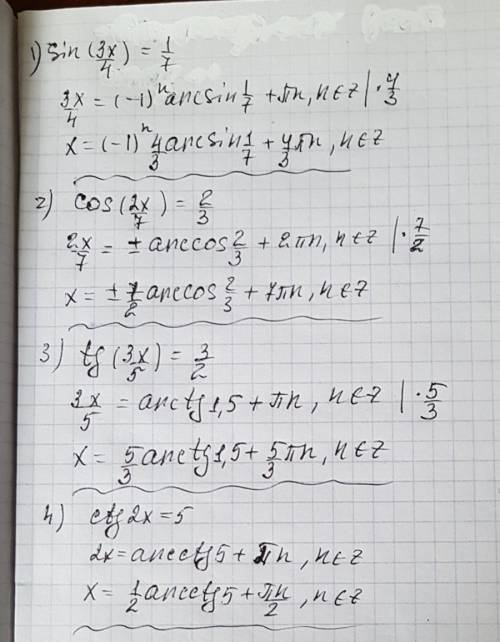 1) sin(3x/4) = 1/7
3x/4 = (-1)^n arcsin 1/7 + πn, n∈z | · 4/3
x = (-1)^n 4/3 arcsin 1/7 + 4/3 πn, n∈z
2) cos(2x/7) = 2/3
2x/7 = ± arccos 2/3 + 2πn, n∈z | · 7/2
x = ± 7/2 arccos 2/3 + 7πn, n∈z
3) tg(3x/5) = 3/2
3x/5 = arctg 1,5 + πn, n∈z | · 5/3
x = 5/3 arctg 1,5 + 5/3 πn, n∈z
4) ctg 2x = 5
2x = arcctg 5 + πn, n∈z
x = 1/2 arcctg 5 + πn/2, n∈z